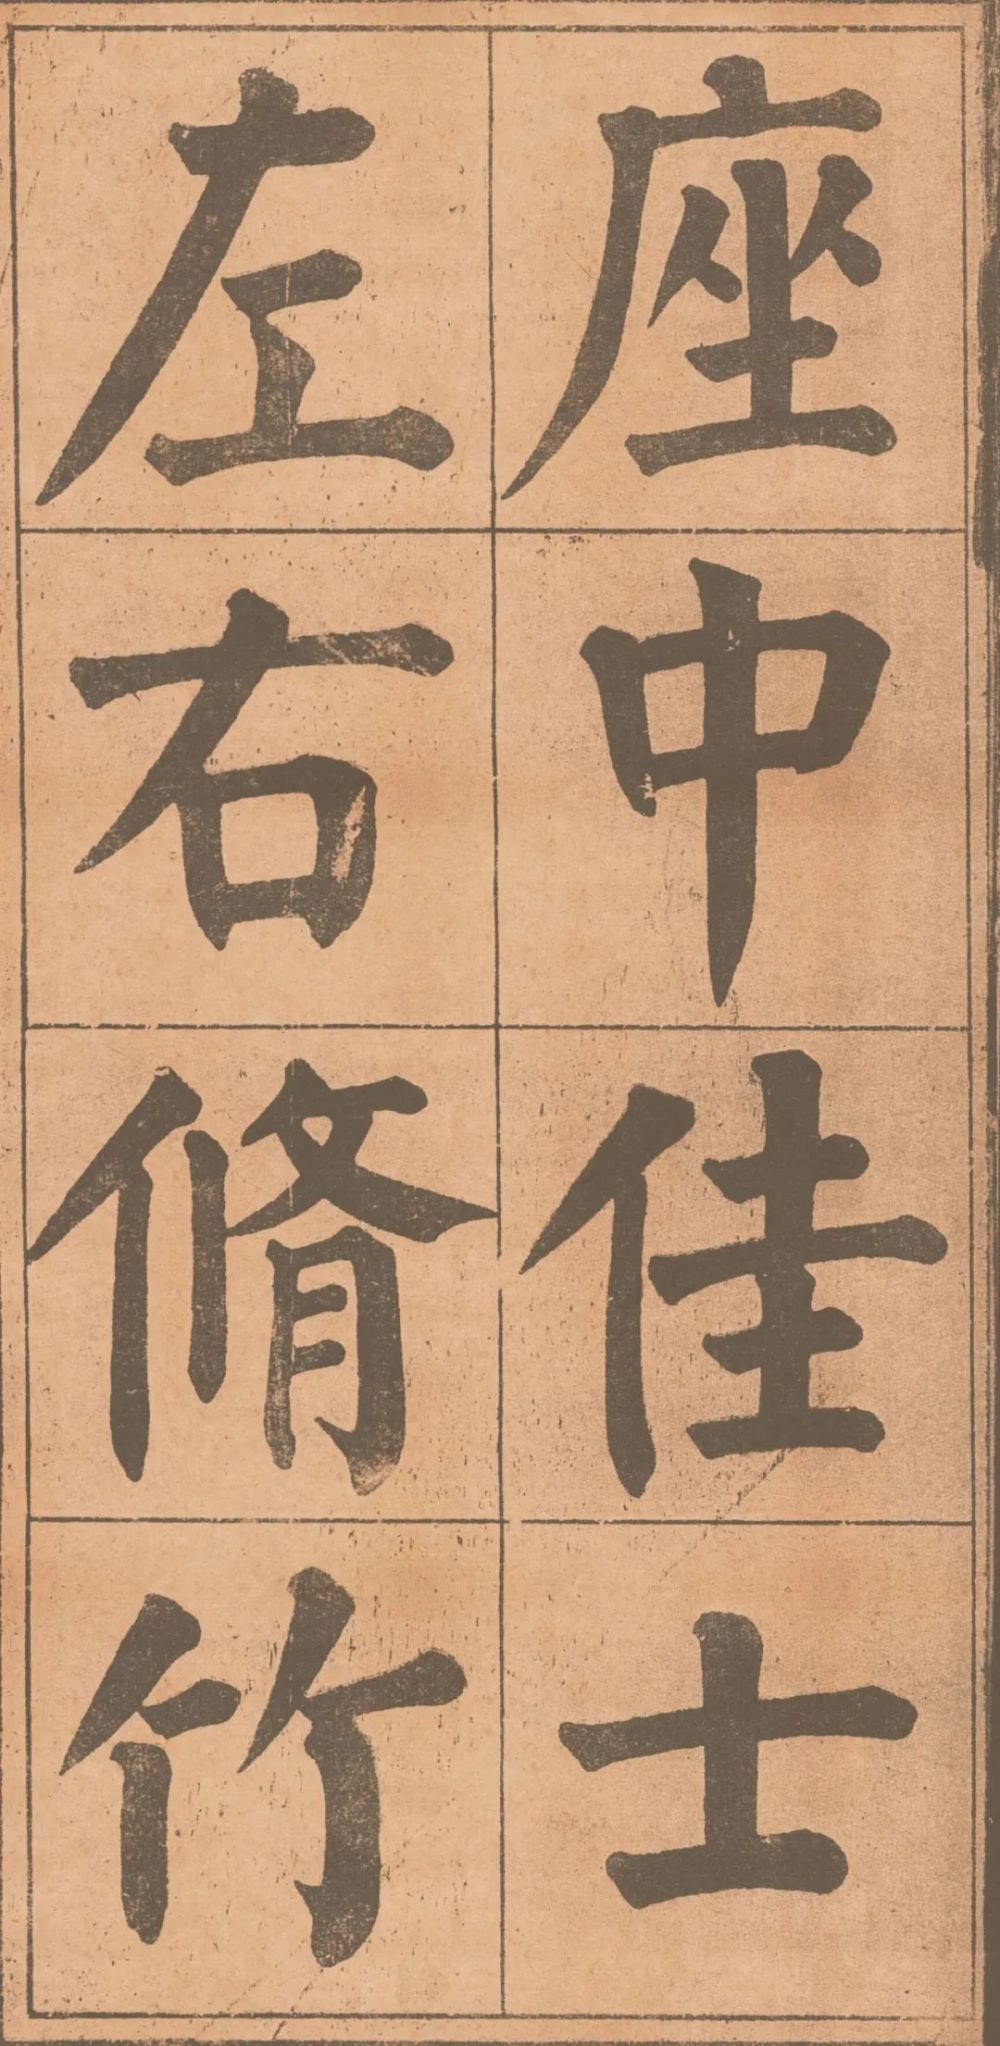 座中佳士
左右脩竹